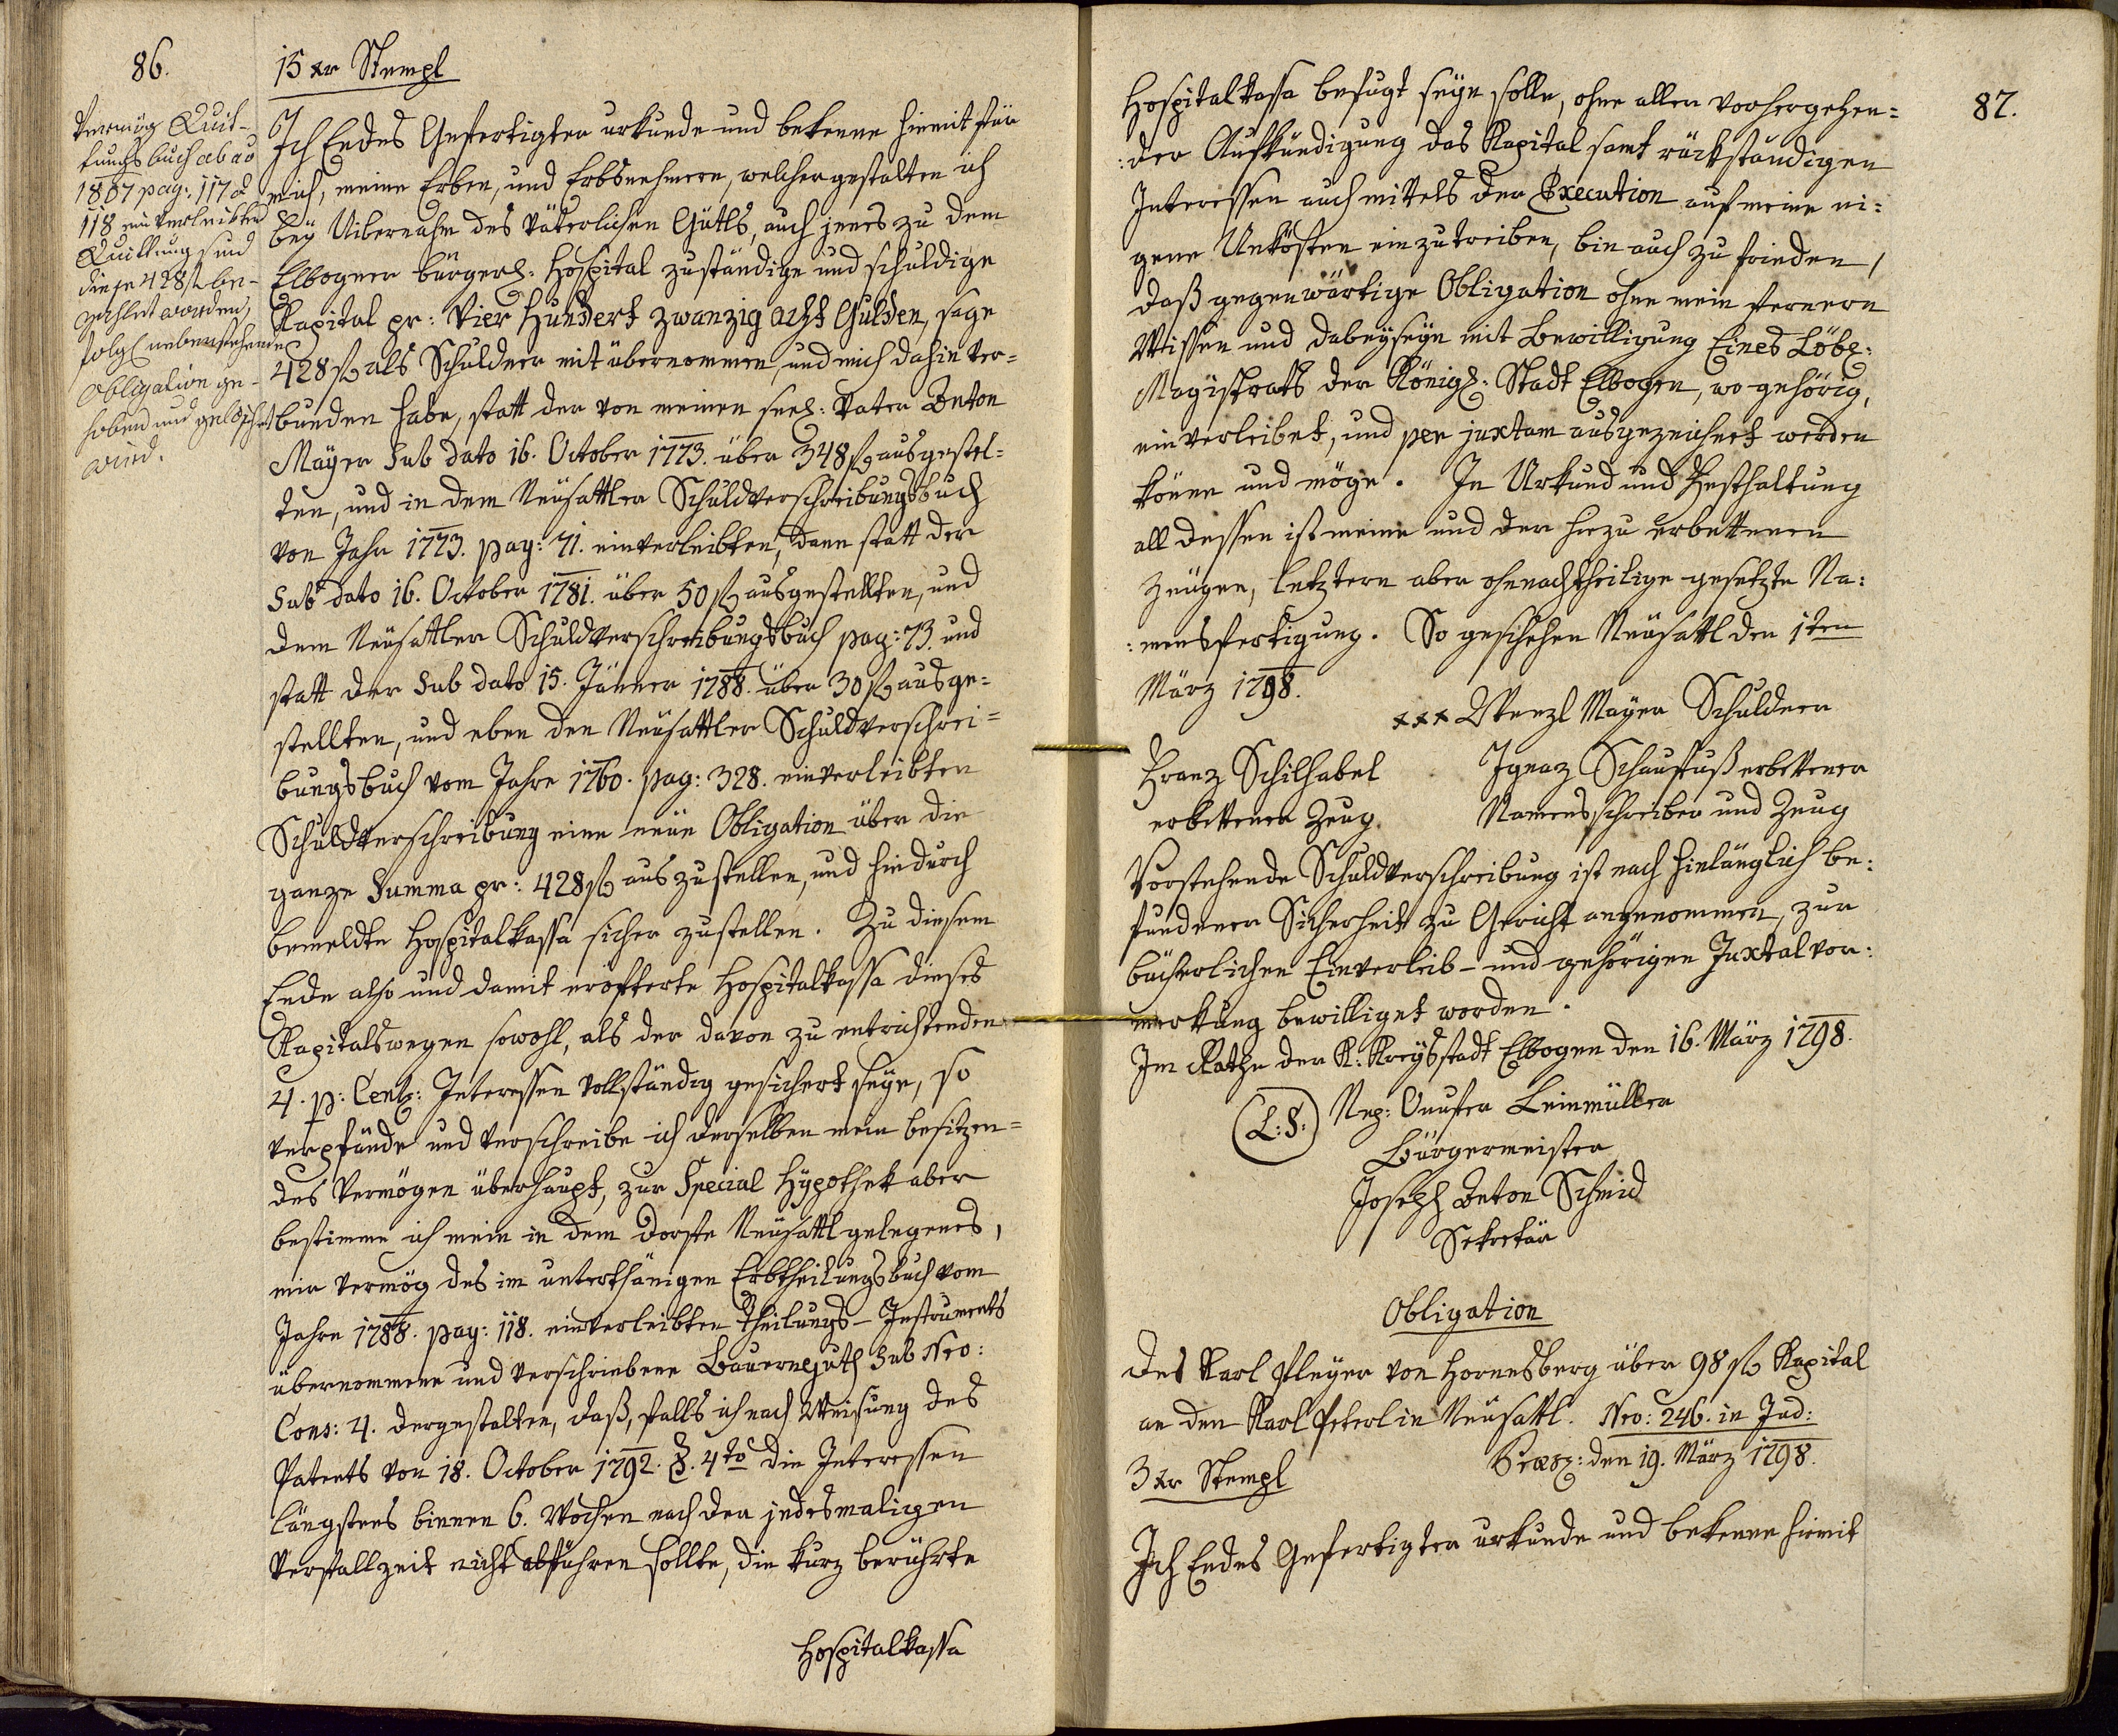 86.
15 xr Stempl
Vermög Quit-
tungsbuch ab ao
1807 pag: 117 &
118 einverleibten
Quittung sind
diese 428 f be-
zahlet worden,
folgl nebenstehende
Obligation ge-
hoben und gelöschet
wird.
Ich Endes Gefertigter urkunde und bekenne hiemit für
mich, meine Erben, und Erbsnehmern, welchergestalten ich
beÿ Uibernahm des väterlichen Gütls, auch jenes zu dem
Elbogner bürgerl: Hospital zuständige und schuldige
Kapital pr: Vier Hundert zwanzig acht Gulden, sage
428 f als Schuldner mit übernommen, und mich dahin ver=
bunden habe, statt der von meinen seel: Vater Anton
Maÿer Sub dato 16. October 1773. über 348 f ausgestel=
ten, und in dem Neusattler Schuldverschreibungsbuch
von Jahr 1773. pag: 71. einverleibten, dann statt der
Sub dato 16. October 1781. über 50 f ausgestellten, und
dem Neusattler Schuldverschreibungsbuch pag: 73. und
statt der Sub dato 15. Jänner 1788. über 30 f ausge=
stellten, und eben den Neusattler Schuldverschrei=
bungsbuch vom Jahre 1760. pag: 328. einverleibten
Schuldverschreibung eine neue Obligation über die
ganze Summa pr: 428 f auszustellen, und hiedurch
bemeldte Hospitalkassa sicher zustellen. Zu diesem
Ende also und damit eröfterte Hospitalkassa dieses
Kapitalswegen sowohl, als der davon zu entrichtenden
4. p: Cent: Interessen vollständig gesichert seÿe, so
verpfände und verschreibe ich derselben mein besitzen=
des Vermögen überhaupt, zur Special Hÿpothek aber
bestimme ich mein in dem Dorfe Neusattl gelegenes,
mir vermög des im unterthänigen Erbtheilungsbuch vom
Jahre 1788. pag: 118. einverleibten Theilungs-Instruments
übernommene und verschriebene Bauernguth Sub Nro:
Cons: 4. dergestalten, daß, falls ich nach Weisung des
Patents von 18. October 1792. §. 4to die Interessen
längstens binnen 6. Wochen nach der jedesmaligen
Verfallzeit nicht abführen sollte, die kurz berührte
Hospitalkassa
87.
Hospitalkassa befugt seÿn solle, ohne aller vorhergehen=
:der Aufkündigung das Kapital samt rückständigen
Interessen auch mittels der Execution auf meine ei:
gene Unkösten einzutreiben, bin auch zu frieden,
daß gegenwärtige Obligation ohne mein fernern
Wissen und dabeÿseÿn mit Bewilligung Eines Löbl:
Magistrats der Königl: Stadt Elbogen, wo gehörig,
einverleibet, und per juxtam ausgezeichnet werden
könne und möge. In Urkund und Festhaltung
all dessen ist meine und der hiezu erbettenen
Zeugen, letztern aber ohnnachtheilige gesetzte Na:
:mensfertigung. So geschehen Neusattl den 1ten
März 1798.
xxx Wenzl Mayer Schuldner
Franz Schilhabel
erbettener Zeug.
Ignaz Schaufuß erbettener
Namensschreiber und Zeug
Vorstehende Schuldverschreibung ist nach hinlänglich be:
fundener Sicherheit zu Gericht angenommen, zur
bücherlichen Einverleib- und gehörigen Juxtalvor:
merkung bewilliget worden.
Im Rathe der K: Kreÿsstadt Elbogen den 16. März 1798.
(L:S:) Nep: Onufer Leinmüller
Bürgermeister
Joseph Anton Schmid
Sekretär
Obligation
des Karl Pleyer von Hornesberg über 98 f Kapital
an den Karl Peterl in Neusattl. Nro: 246. in Jud:
3 xr Stempl
Præs: den 19. März 1798.
Ich Endes Gefertigter urkunde und bekenne hiemit